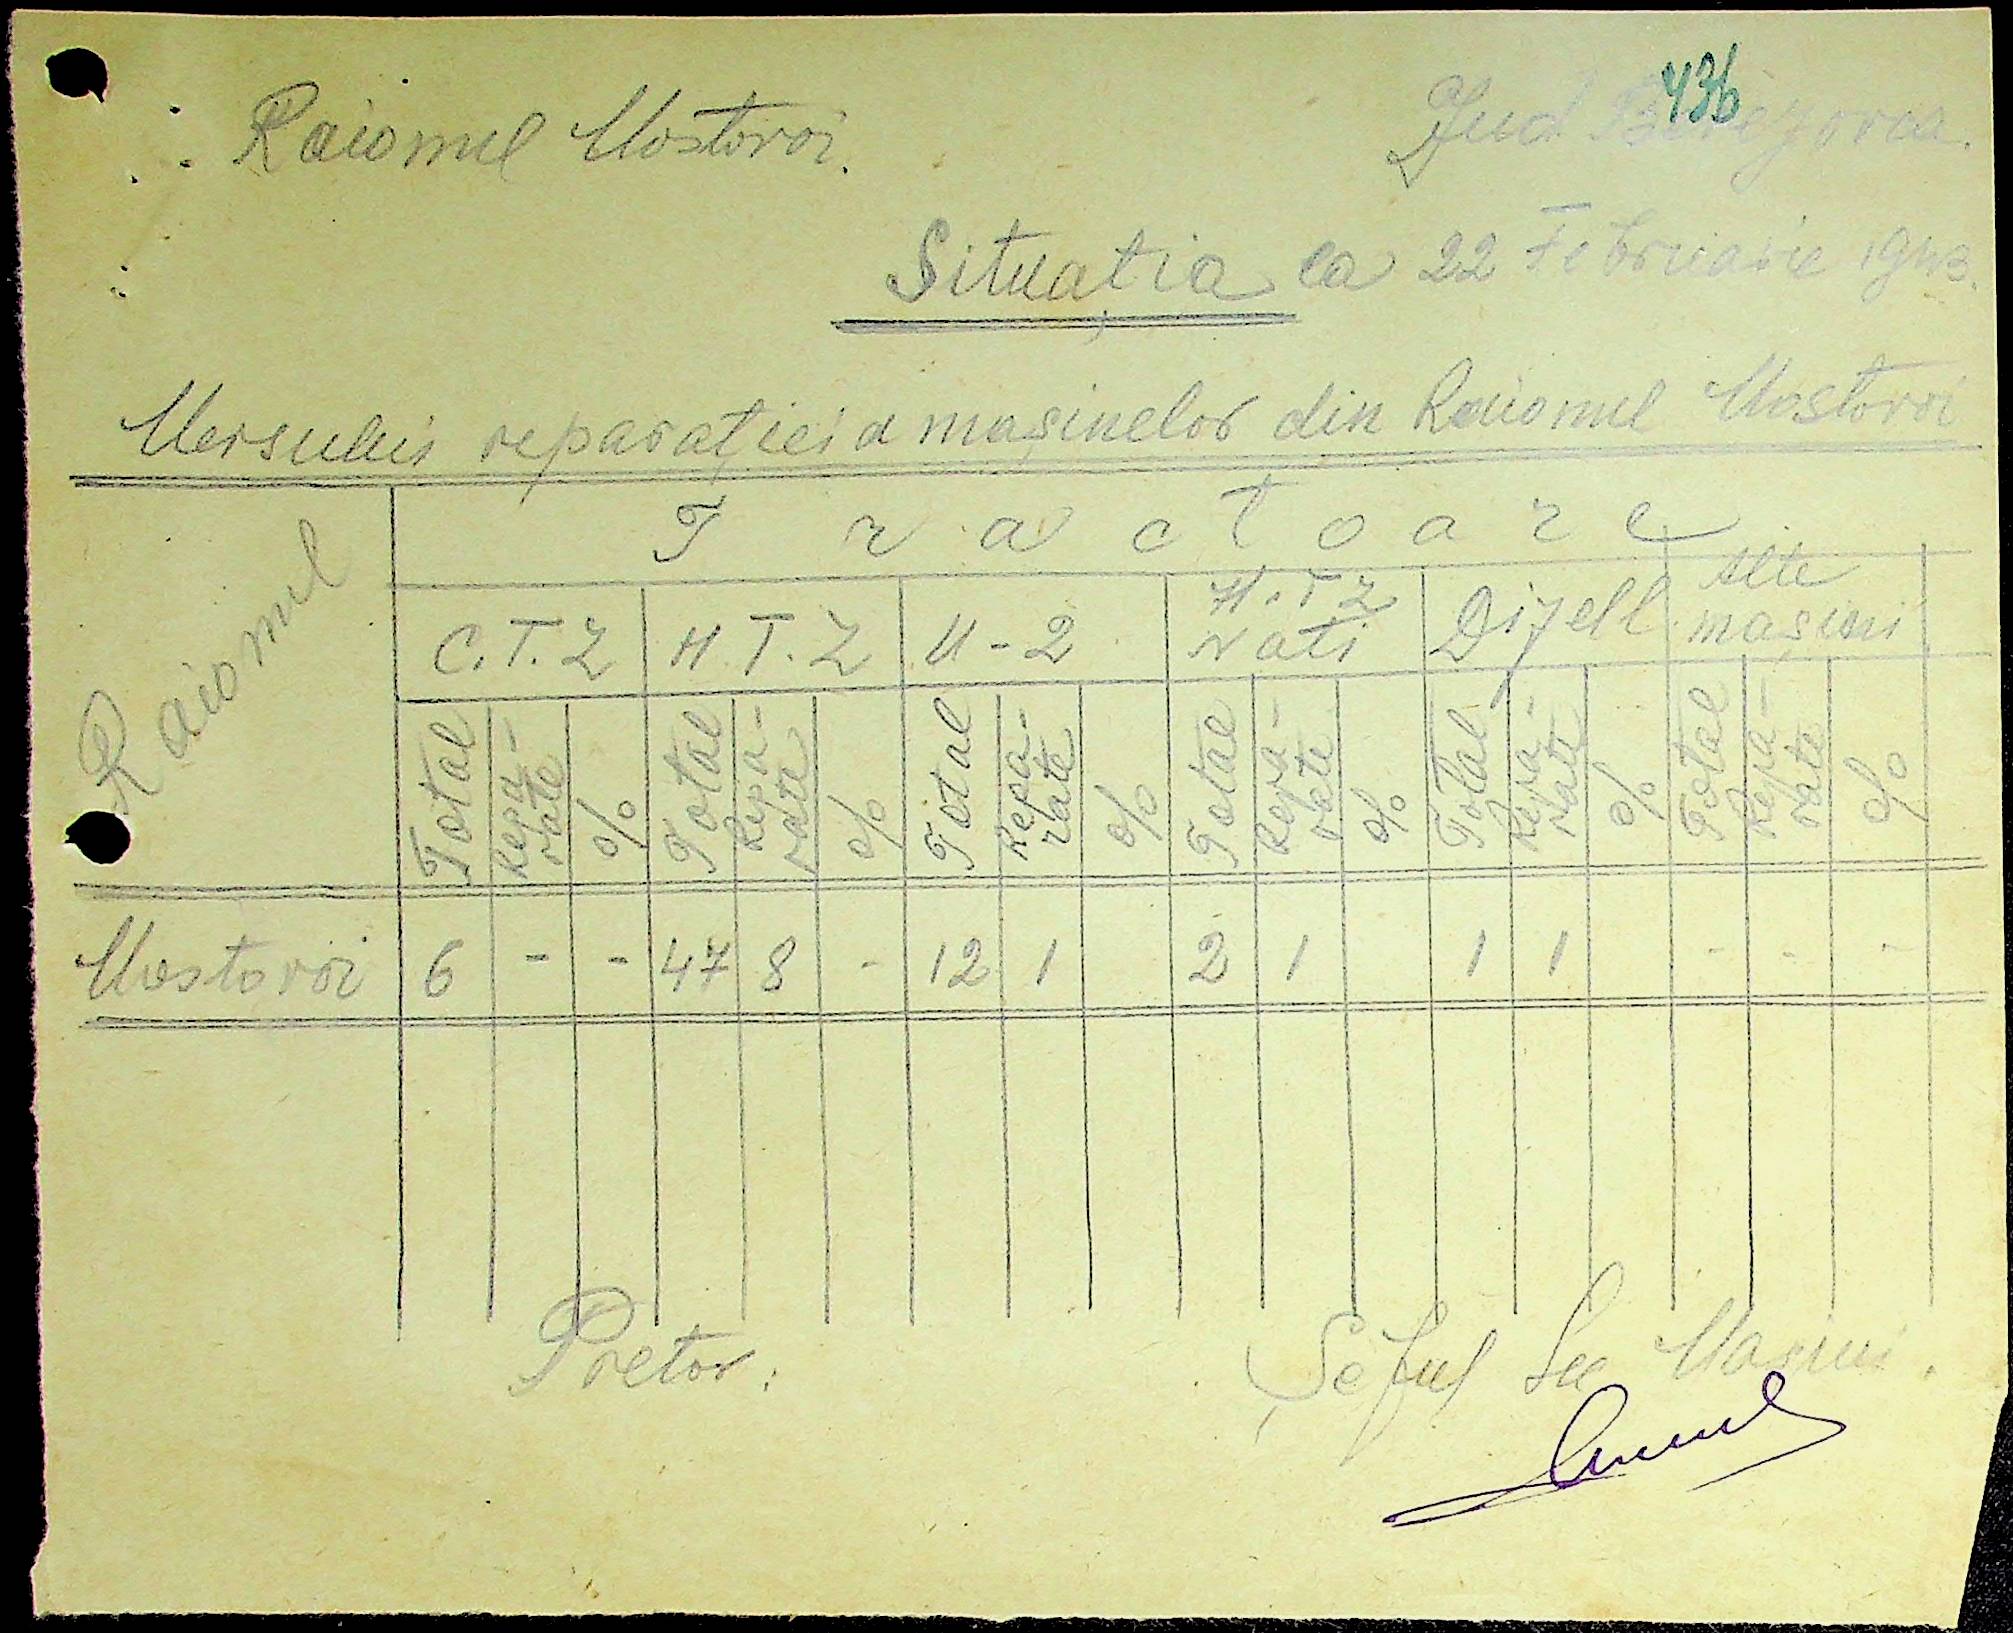 436
Raionul Mostovoi. Jud Berezovca.
Situația la 22 Februarie 1943.
Mersului reparației a mașinelor din Raionul Mostovoi
Raionul Tractoare
C.T.Z H T.Z U-2 H.T Z Nati Dizell Alte mașini
Total Repa-rate % Total Repa-rate % Total Repa-rate % Total Repa-rate % Total Repa-rate % Total Repa-rate %
Mostovoi 6 - - 47 8 - 12 1 2 1 1 1 - - -
Pretor. Șeful Mașini.